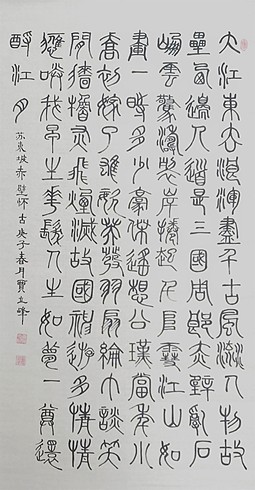 大江東去浪淘盡千古風流人物故
壘西邊人道是三國周郎赤壁亂石
崩雲驚濤裂岸捲起千堆雪江山如
畫一時多少豪傑遙想公瑾當年小
喬初嫁了雄姿英發羽扇綸巾談笑
間檣櫓灰飛煙滅故國神遊多情
應笑我早生華髮人生如夢一尊還
酹江月
苏東坡赤壁怀古庚子春月寶立峰